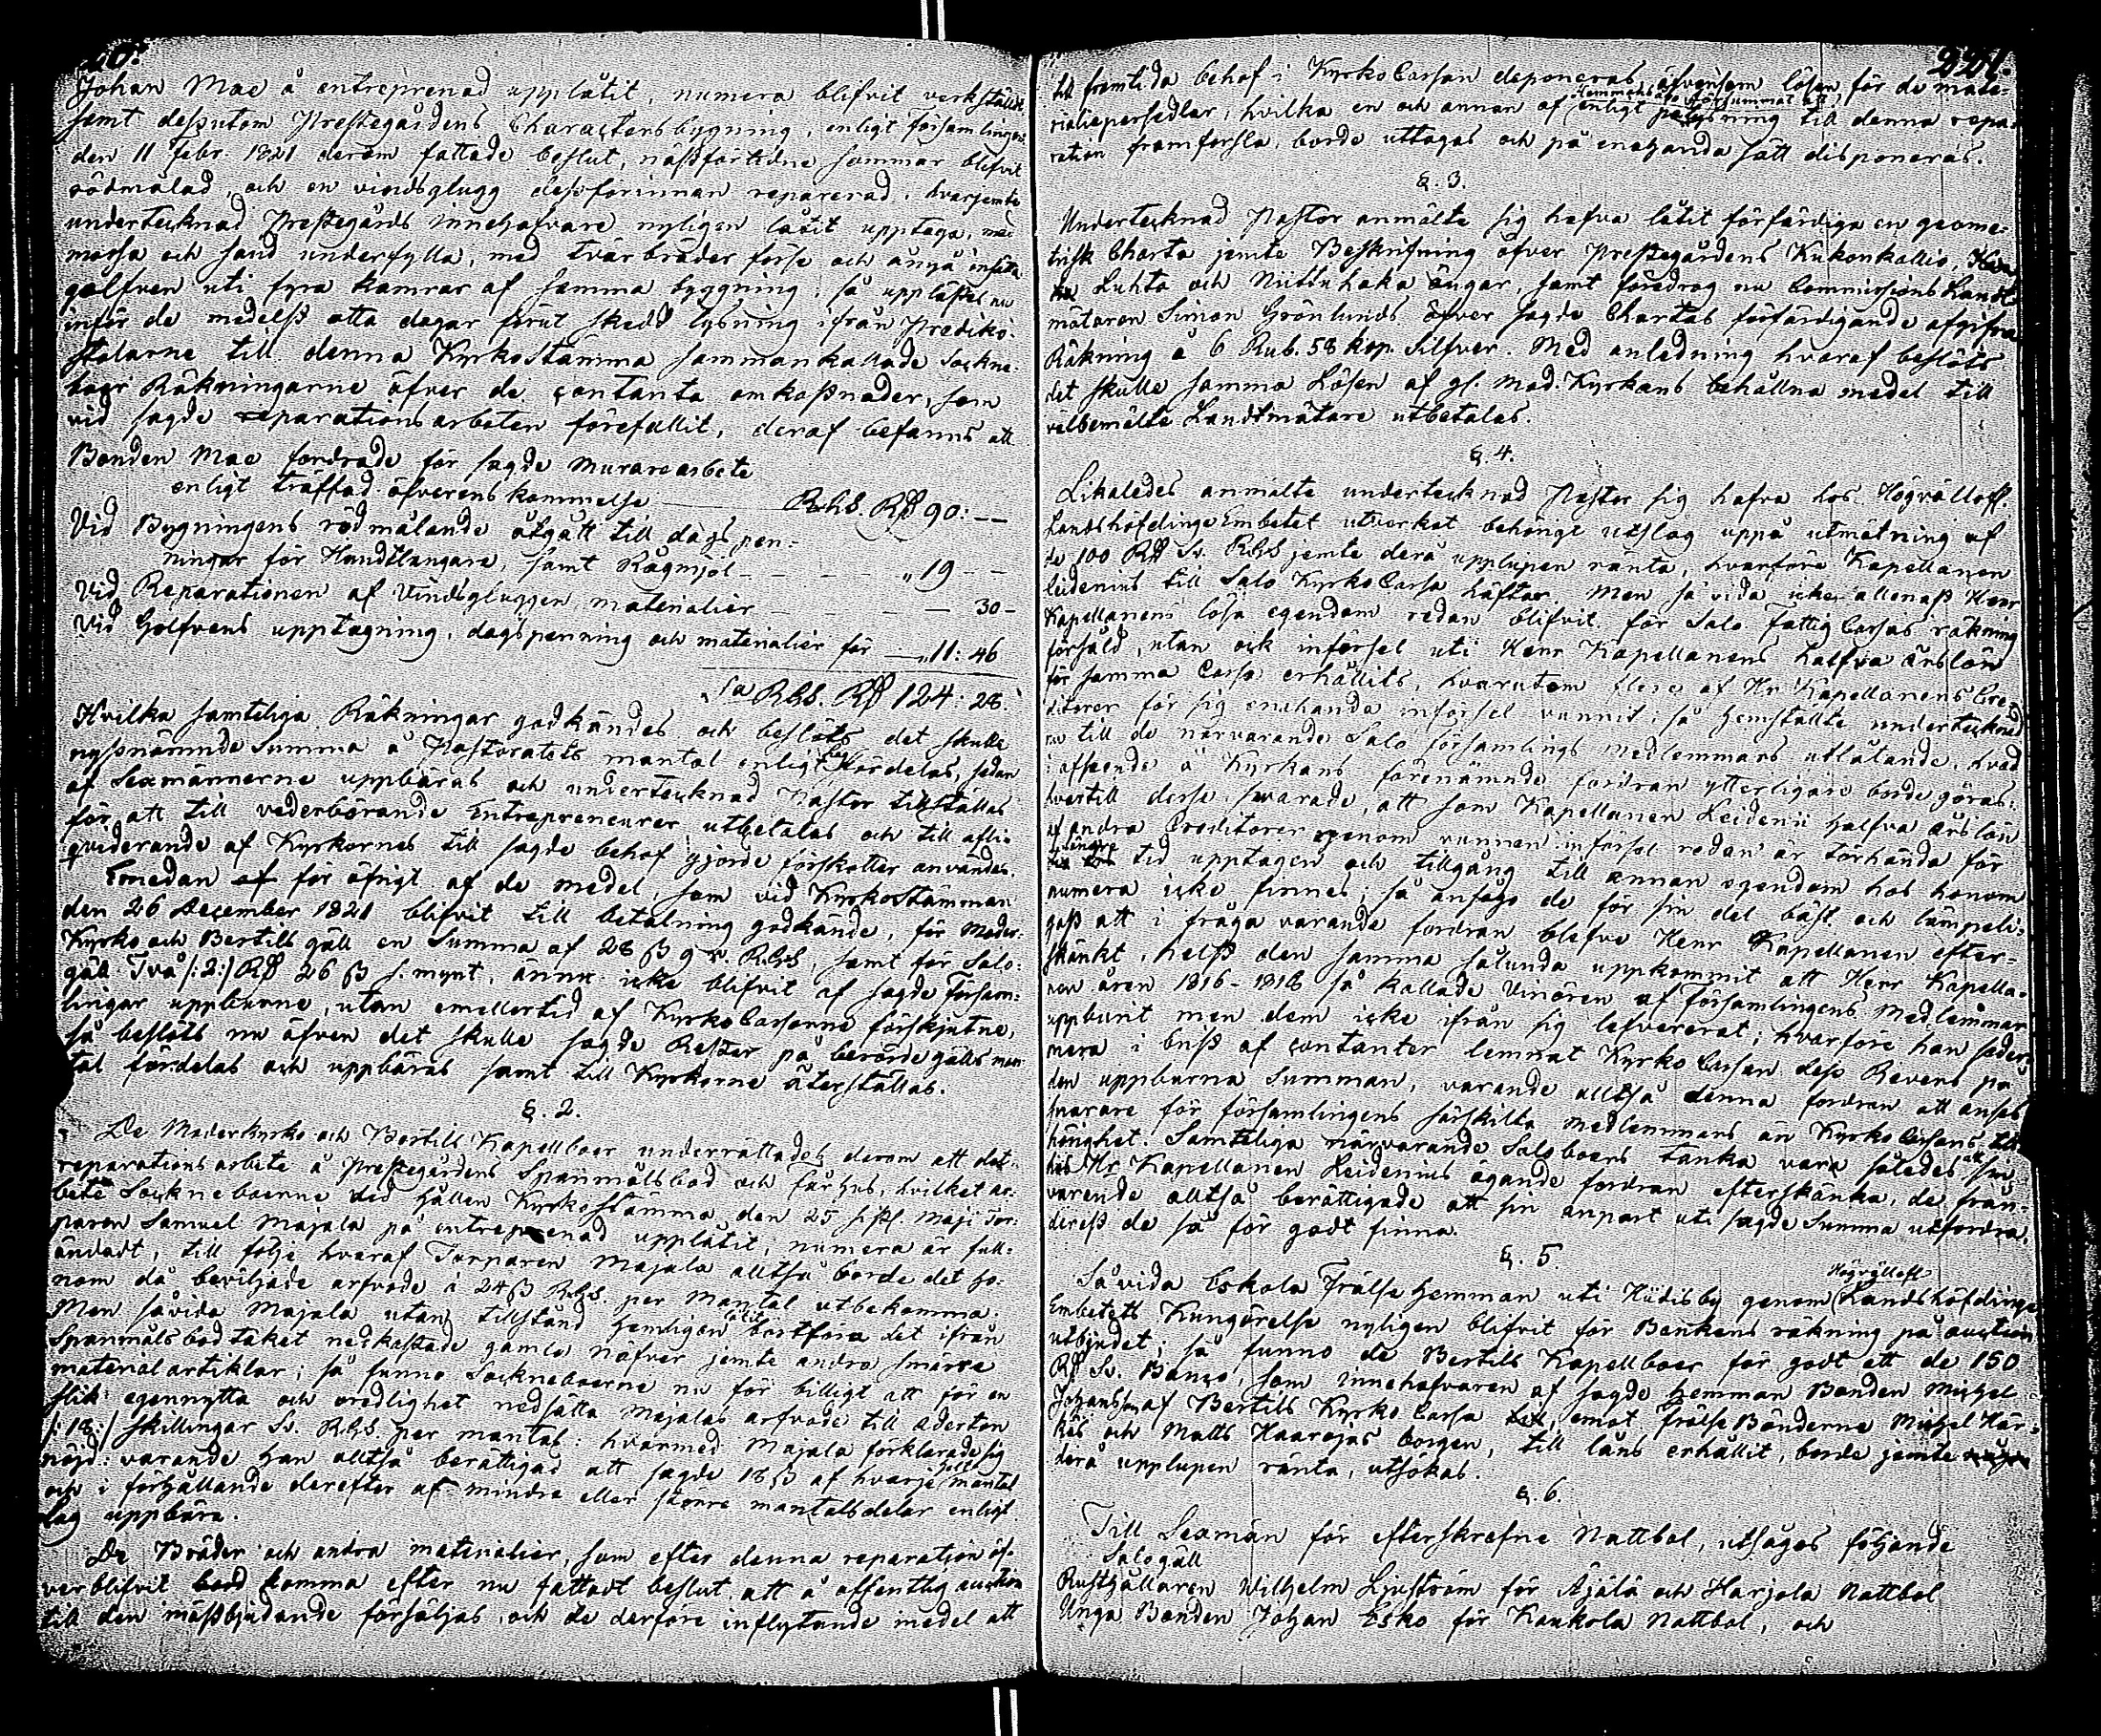 Johan Mae å entreprenad upplåtit, numera blifvit verkställdt
samt dessutom Prestegårdens Charactersbygning, enligt församlingens
den 11 Febr. 1821 derom fattade beslut, nästförtidne sommar blifvit
rödmålad, och en vindsglugg dessförinnan reparerad, hvarjemte
undertecknad Prestegårds innehafvare nyligen låtit upptaga, med
mossa och sand underfylla, med tvärbräder förse och å nyo insätta
golfven uti fyra kamrar af samma byggning; så upplästes nu
inför de medelst åtta dagar förut skedd lysning ifrån Prediko-
stolarne till denna Kyrkostämma sammankallade Sockne-
boer Räkningarne öfver de contanta omkostnader, som
vid sagde reparationsarbeten förefallit, deraf befanns att
Bonden Mae fordrade för sagde Murarearbete
enligt träffad öfverenskommelse R:G:S. Rd 90: —
Vid Bygningens rödmålande åtgått till dagspen-
ningar för Handtlangare, samt Rågmjöl - - - „ 19 - -
Vid Reparationen af Vindsgluggen, materialier - - - 30 -
Vid Golfvens upptagning, dagspenning och materialier för — „ 11: 46
Sa RGS. Rd 124: 28.
Hvilka samteliga Räkningar godkändes och beslöts det skulle
nyssnämnde Summa å Pastoratets mantal enligt Lag fördelas, sedan
af Sexmännerne uppbäras och undertecknad Pastor tillställas
för att till vederbörande Entrepreneurer utbetalas och till afli-
qviderande af Kyrkornes till sagde behof gjorde förskotter användas.
Emedan af för öfrigt af de medel, som vid Kyrkostämman
den 26 December 1821 blifvit till betalning godkände, för Moder-
Kyrko och Bertills gäll en Summa af 28 ß 9 r. RGS, samt för Salo-
gäll Två /:2:/ Rd 26 ß s. mynt, ännu icke blifvit af sagde Försam-
lingar uppburne, utan emellertid af KyrkoCassorne förskjutne,
så beslöts nu äfven det skulle sagde Rester på berörde gälls man-
tal fördelas och uppbäras samt till Kyrkorne återställas.
§. 2.
De Moderkyrko och Bertills Kapellboer underrättades derom att det
reparationsarbete å Prestegårdens Spanmålsbod och Fårhus, hvilket ar-
bete Sockneboerne vid hållen Kyrkostämma den 25 sistl. Maji Tor-
paren Samuel Majala på entreprenad upplåtit, numera är full-
ändadt, till följe hvaraf Torparen Majala alltså borde det ho-
nom då beviljade arfvode á 24 ß RGS. per Mantal utbekomma.
Men såvida Majala utan tillstånd hemligen låtit bortföra det ifrån
Spanmålsbodtaket nedkastade gamla näfver jemte andra smärre
materialartiklar; så funno Sockneboerne nu för billigt att för en
slik egennytta och oredlighet nedsätta Majalas arfvode till Aderton
/:18:/ skillingar Sv. RGS. per mantal: hvarmed Majala förklarade sig
nöjd: varande han alltså berättigad att sagde 18 ß af hvarje helt mantal
och i förhållande derefter af mindre eller större mantalsdelar enligt
Lag uppbära.
De Bräder och andra materialier, som efter denna reparation öf-
verblifvit komma efter nu fattadt beslut att å offentlig auction
till den mästbjudande försäljas, och de derföre inflytande medel att
221.
till framtida behof i KyrkoCassan deponeras, äfvensom lösen för de mate-
rialiepersedlar, hvilka en och annan af Hemmansåboerne försummat att enligt pålysning till denna repa-
ration framforsla, borde uttagas och på enahanda sätt disponeras.
§. 3.
Undertecknad Pastor anmälte sig hafva låtit förfärdiga en geome-
trisk Charta jemte Beskrifning öfver Prestegårdens Kukonkallio,
Luhta och Niittuhaka ängar, samt föredrog nu Commissions Landt-
mätaren Simon Grönlunds öfver sagde Chartas förfärdigande afgifna
Räkning å 6 Rub. 58 kop. Silfver. Med anledning hvaraf beslöts
det skulle samma Lösen af gl. Mod. Kyrkans behållna medel till
välbemälte Landtmätare utbetalas.
§. 4.
Likaledes anmälte undertecknad Pastor sig hafva hos Högvällofl.
LandshöfdingeEmbetet utverkat behörigt utslag uppå utmätning af
de 100 Rd Sv. RGS jemte derå upplupen ränta, hvarföre Kapellanen
Leidenius till Salo KyrkoCassa häftar. Men så vida icke allenast Herr
Kapellanens lösa egendom redan blifvit för Salo FattigCassas räkning
försåld, utan ock införsel uti Herr Kapellanens halfva årslön
för samma Cassa erhållits, hvarutom flere af Hr Kapellanens Cre-
ditorer för sig enahanda införsel vunnit; så hemställte undertecknad
nu till de närvarande Salo församlings medlemmars utlåtande, hvad
i afseende å Kyrkans förenämnde fordran ytterligare borde göras:
hvartill desse svarade, att som Kapellanen Leidenii halfva årslön
af andra Creditorer genom vunnen införsel redan är förhända för
längre tid upptagen och tillgång till annan egendom hos honom
numera icke finnes; så ansågo de för sin del bäst och lämpeli-
gast att i fråga varande fordran blefve Herr Kapellanen efter-
skänkt, helst den samma sålunda uppkommit att Herr Kapella-
nen åren 1816-1818 så kallade Vinören af Församlingens Medlemmar
uppburit men dem icke ifrån sig lefvererat; hvarföre han seder-
mera i brist af contanter lemnat KyrkoCassan dess Revers på
den uppburna Summan, varande alltså denna fordran att anses
snarare för församlingens särskilta medlemmars än KyrkoCassans till-
hörighet. Samteliga närvarande Saloboers tanka vara således att sin
hos Hr Kapellanen Leidenius ägande fordran efterskänka, de från-
varande alltså berättigade att sin anpart uti sagde Summa utfordra,
derest de så för godt finna.
§. 5.
Så vida Eskola Frälse hemman uti Hiidisby genom Högvällofl. Landshöfdinge
Embetets Kungörelse nyligen blifvit för Bankens räkning på auction
utbjudet; så funno de Bertils Kapellboer för godt att de 150
Rd Sv. Banco, som innehafvaren af sagde hemman Bonden Michel
Johansson af Bertils KyrkoCassa emot FrälseBönderne Michel Här-
käs och Matts Haarojas borgen, till låns erhållit, borde jemte
derå upplupen ränta, utsökas.
§. 6.
Till Sexmän för efterskrefne Nattbol, utsågos följande
Salo gäll
Rusthållaren Wilhelm Ljuström för Äjälä och Harjola Nattbol
Unga Bonden Johan Esko för Kaukola Nattbol, och